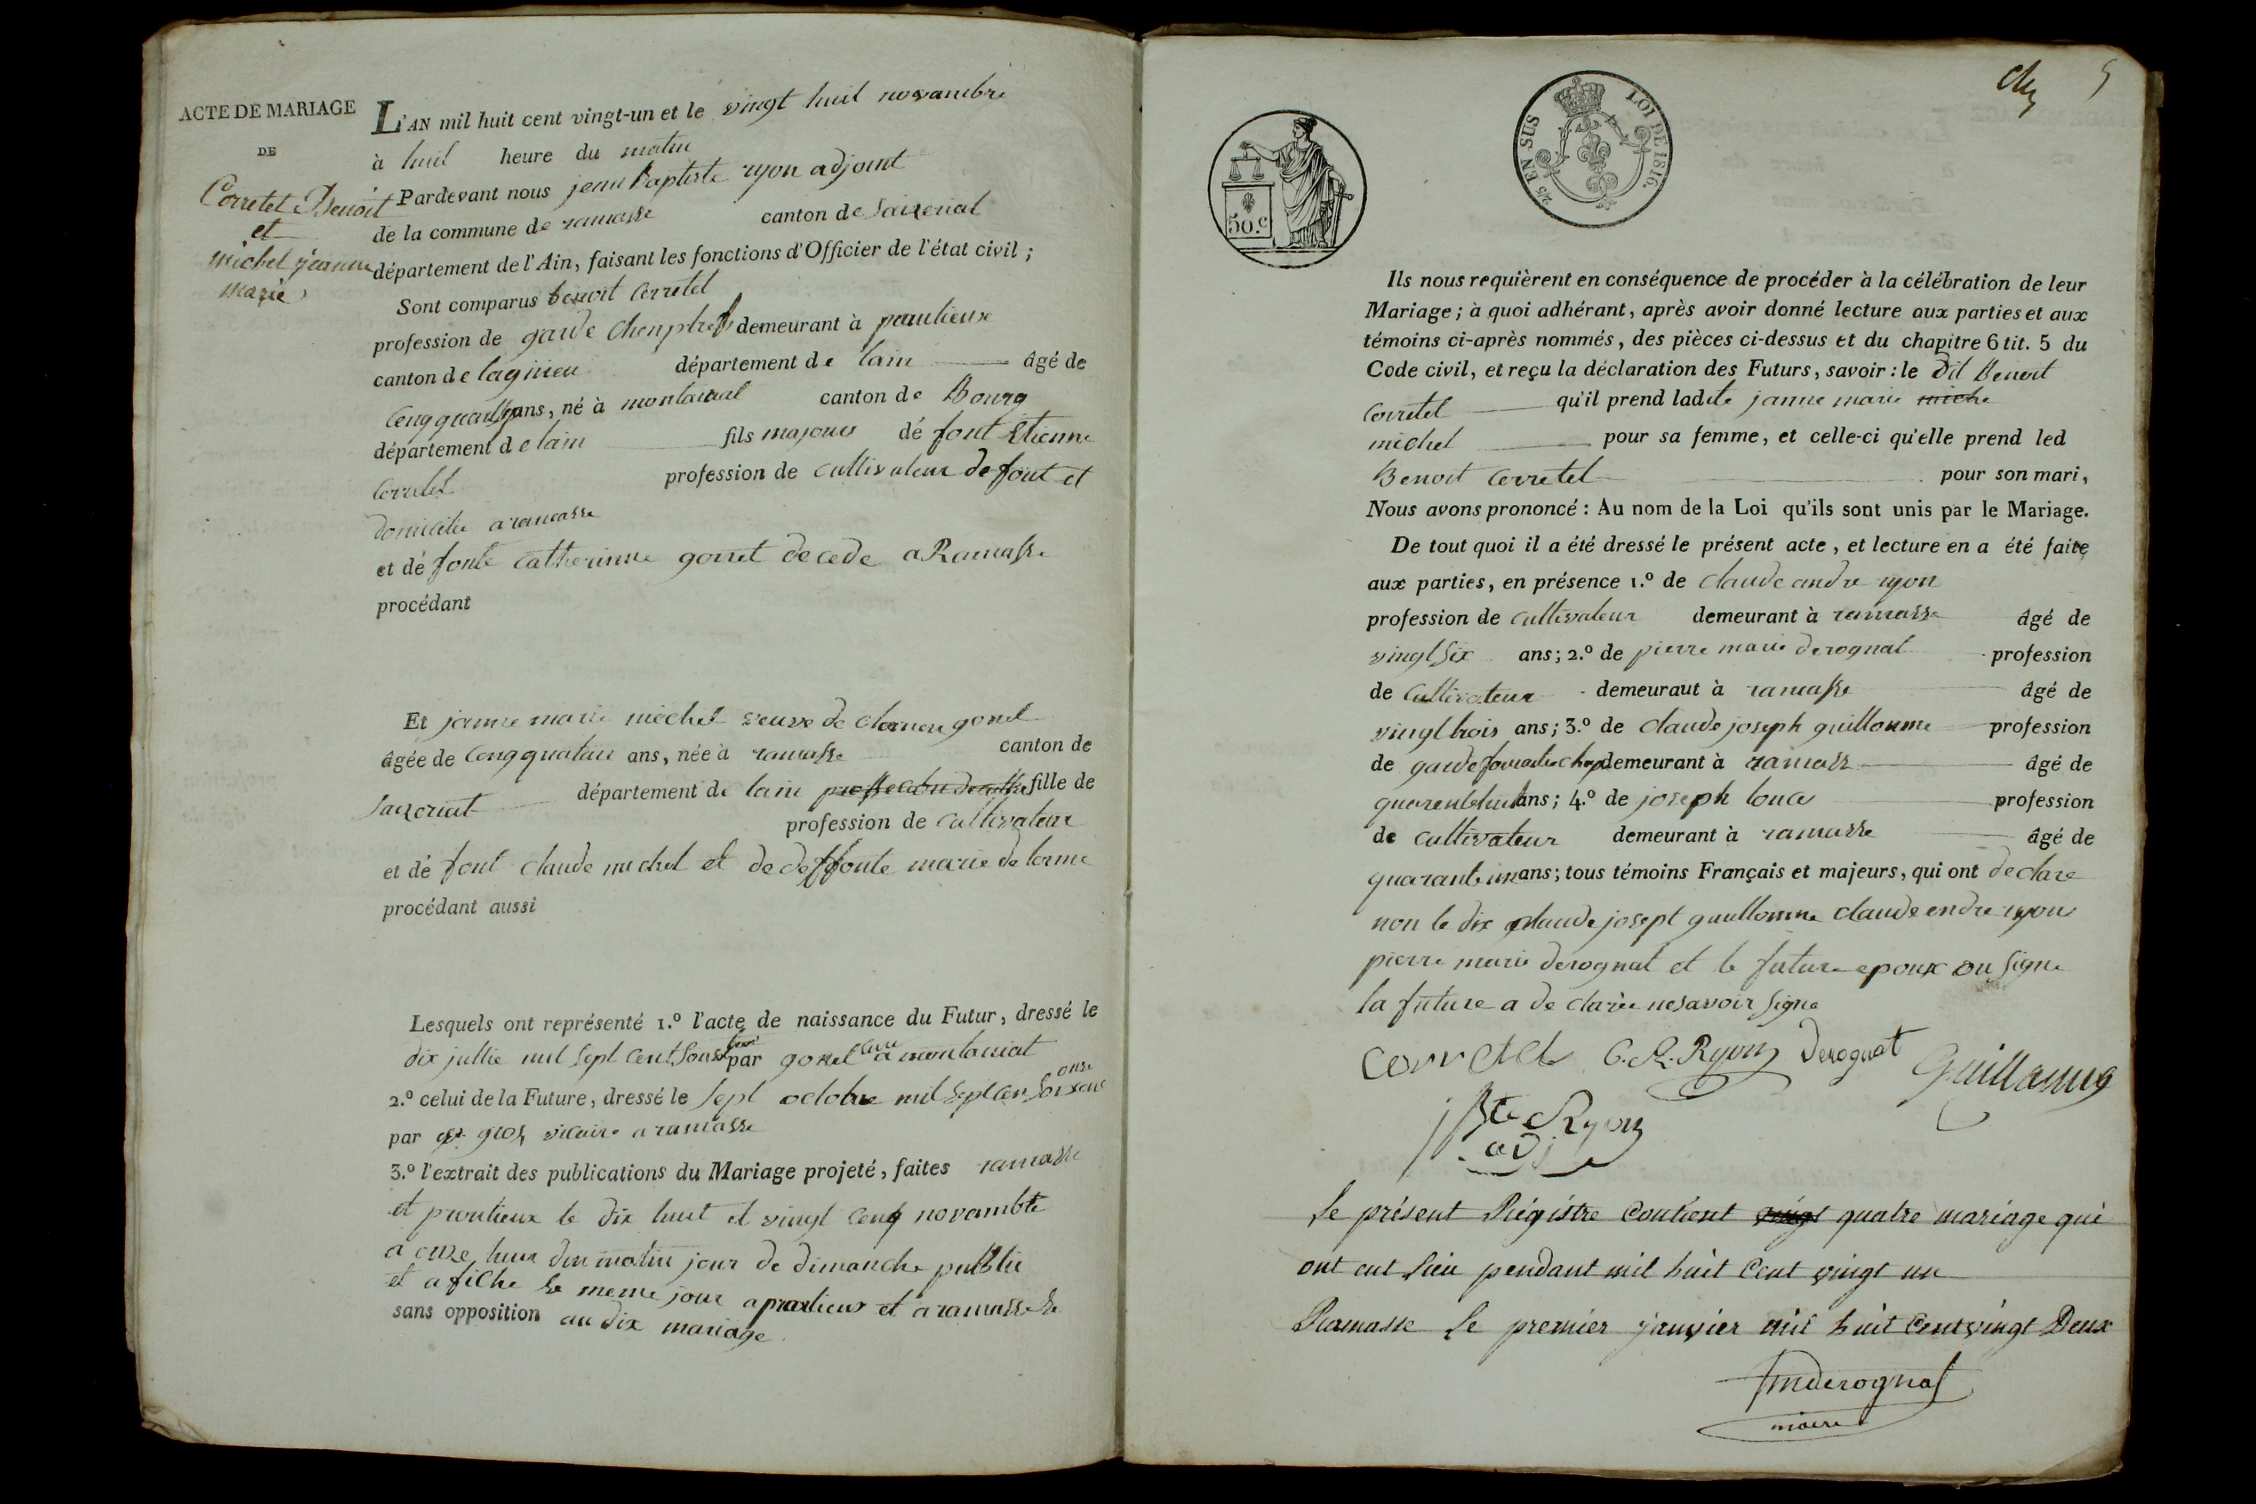 ACTE DE MARIAGE
DE
Corretet Benoit
et
michel jeanne
marie
L'AN mil huit cent vingt-un et le vingt huit novambre
à huit heure du matin
Pardevant nous jean baptiste ryon adjoint
de la commune de ramasse canton de
département de l'Ain, faisant les fonctions d'Officier de l'état civil ;
Sont comparus benoit Corretet
profession de garde demeurant à
canton de lagnieu département de lain âgé de
ans, né à canton de Bourg
département de lain fils majour dé font Etienne
Corretet profession de cultivateur defont et
domicilie a ramasse
et dé fonte Catherinne gonet decede a Ramasse
procédant
Et janne marie michel veuve de gonet
âgée de ans, née à ramasse canton de
département de lain fille de
profession de Cultivateur
et dé font claude michel et de deffonte marie
procédant aussi
Lesquels ont représenté 1.º l'acte de naissance du Futur, dressé le
dix mil sept cent par gonet
2.º celui de la Future, dressé le sept octobre mil sept cen
onse
par gros vicaire a ramasse
3.º l'extrait des publications du Mariage projeté, faites ramasse
et proulieux le dix huit et vingt cenq novambre
a onze heur dumatin jour de dimanche publie
et afiche le meme jour a et a ramasse
sans opposition au dix mariage
5
50.c
2/5 EN SUS
LOI DE 1816.
Ils nous requièrent en conséquence de procéder à la célébration de leur
Mariage ; à quoi adhérant, après avoir donné lecture aux parties et aux
témoins ci-après nommés, des pièces ci-dessus et du chapitre 6 tit. 5 du
Code civil, et reçu la déclaration des Futurs, savoir : le dit Benoit
Corretet qu'il prend ladite janne marie miche
michel pour sa femme, et celle-ci qu'elle prend led
Benoit Corretet pour son mari,
Nous avons prononcé : Au nom de la Loi qu'ils sont unis par le Mariage.
De tout quoi il a été dressé le présent acte, et lecture en a été faite
aux parties, en présence 1.º de claude andre ryon
profession de cultivateur demeurant à ramasse âgé de
vingt six ans ; 2.º de pierre marie derognat profession
de Cultivateur demeuraut à ramasse âgé de
vingt trois ans ; 3.º de claude joseph guillaume profession
de garde demeurant à ramass âgé de
ans ; 4.º de joseph profession
de cultivateur demeurant à ramasse âgé de
quarante un ans ; tous témoins Français et majeurs, qui ont declare
non le dix claude josept guillomme claude endre ryon
pierre marie derognat et le future epoux on signe
la future a declarée nesavoir signe
Corretet C. A. Ryon Derognat Guillaume
j Bte Ryon
adj
Le présent Régistre Contient vingt quatre mariage qui
ont eut Lieu pendant mil huit Cent vingt un
Ramasse Le premier janvier mil huit Cent vingt Deux
derognat
maire